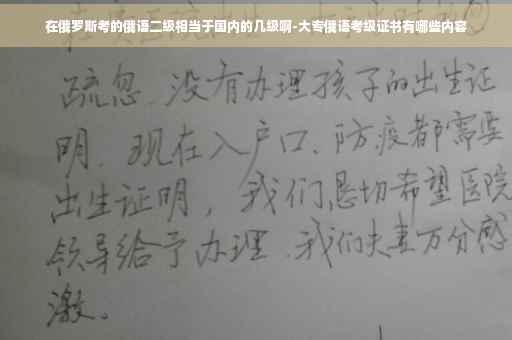 在俄罗斯考的俄语二级相当于国内的几级啊-大专俄语考级证书有哪些内容
疏忽、没有办理孩子的出生证
明、现在入户口、防疫都需要
出生证明，我们恳切希望医院
领导给予办理、我们夫妻万分感
激。